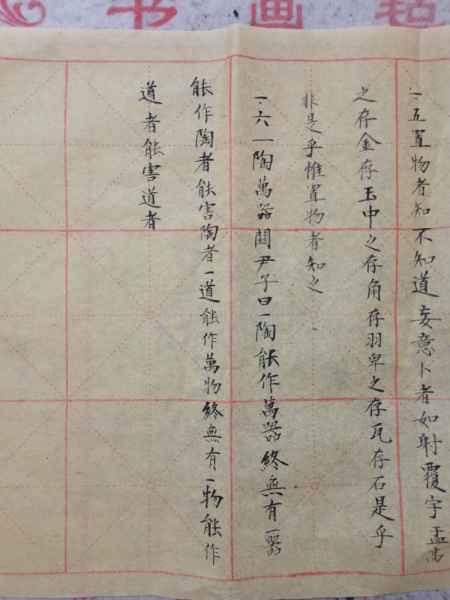 书画毡
一·五置物者知不知道妄意卜者如射覆宇盂高
之存金存玉中之存角存羽卑之存瓦存石是乎
非是乎惟置物者知之
一·六一陶萬器關尹子曰一陶能作萬器終無有一器
能作陶者能害陶者一道能作萬物終無有一物能作
道者能害道者